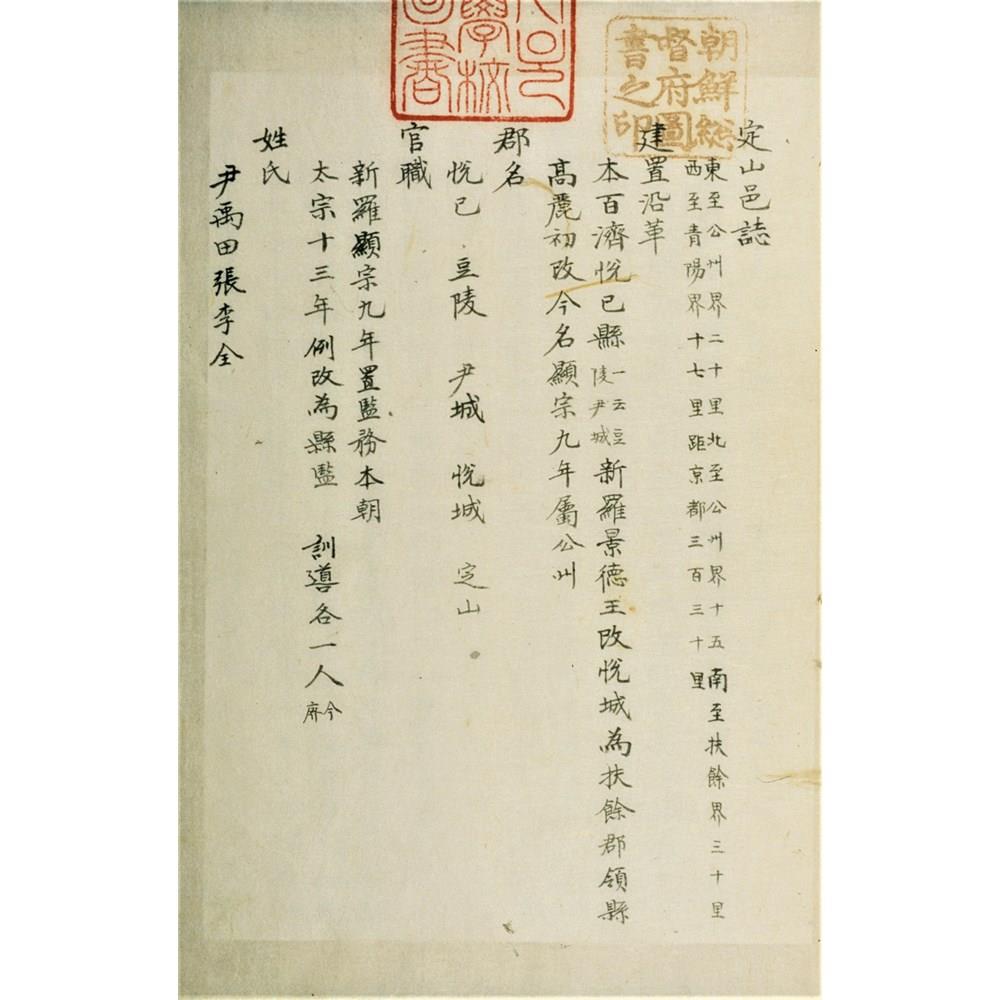 定山邑誌
東至公州界二十里北至公州界十五南至扶餘界三十里
西至青陽界十七里距京都三百三十里
建置沿革
本百濟悅已縣一云豆陵尹城新羅景德王改悅城為扶餘郡領縣
高麗初改今名顯宗九年屬公州
郡名
悅已 豆陵 尹城 悅城 定山
官職
新羅顯宗九年置監務本朝
太宗十三年例改為縣監 訓導各一人今廃
姓氏
尹禹田張李全
朝鮮總
督府圖
書之印
學校
圖書